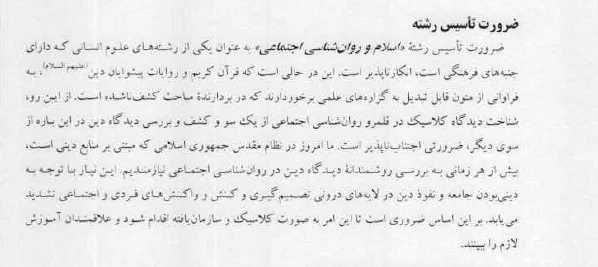 ضرورت تأسیس رشته
ضرورت تأسیس رشتهٔ «اسلام و روان‌شناسی اجتماعی» به عنوان یکی از رشته‌های علوم انسانی که دارای
جنبه‌های فرهنگی است، انکارناپذیر است. این در حالی است که قرآن کریم و روایات پیشوایان دین(علیهم السلام)، به
فراوانی از متون قابل تبدیل به گزاره‌های علمی برخوردارند که در بردارندهٔ مباحث کشف‌ناشده است. از این رو،
شناخت دیدگاه کلاسیک در قلمرو روان‌شناسی اجتماعی از یک سو و کشف و بررسی دیدگاه دین در این باره از
سوی دیگر، ضرورتی اجتناب‌ناپذیر است. ما امروز در نظام مقدس جمهوری اسلامی که مبتنی بر منابع دینی است،
بیش از هر زمانی به بررسی روشمندانهٔ دیدگاه دین در روان‌شناسی اجتماعی نیازمندیم. این نیاز با توجه به
دینی‌بودن جامعه و نفوذ دین در لایه‌های درونی تصمیم‌گیری و کنش و واکنش‌های فردی و اجتماعی تشدید
می‌یابد. بر این اساس ضروری است تا این امر به صورت کلاسیک و سازمان‌یافته اقدام شود و علاقمندان آموزش
لازم را ببینند.